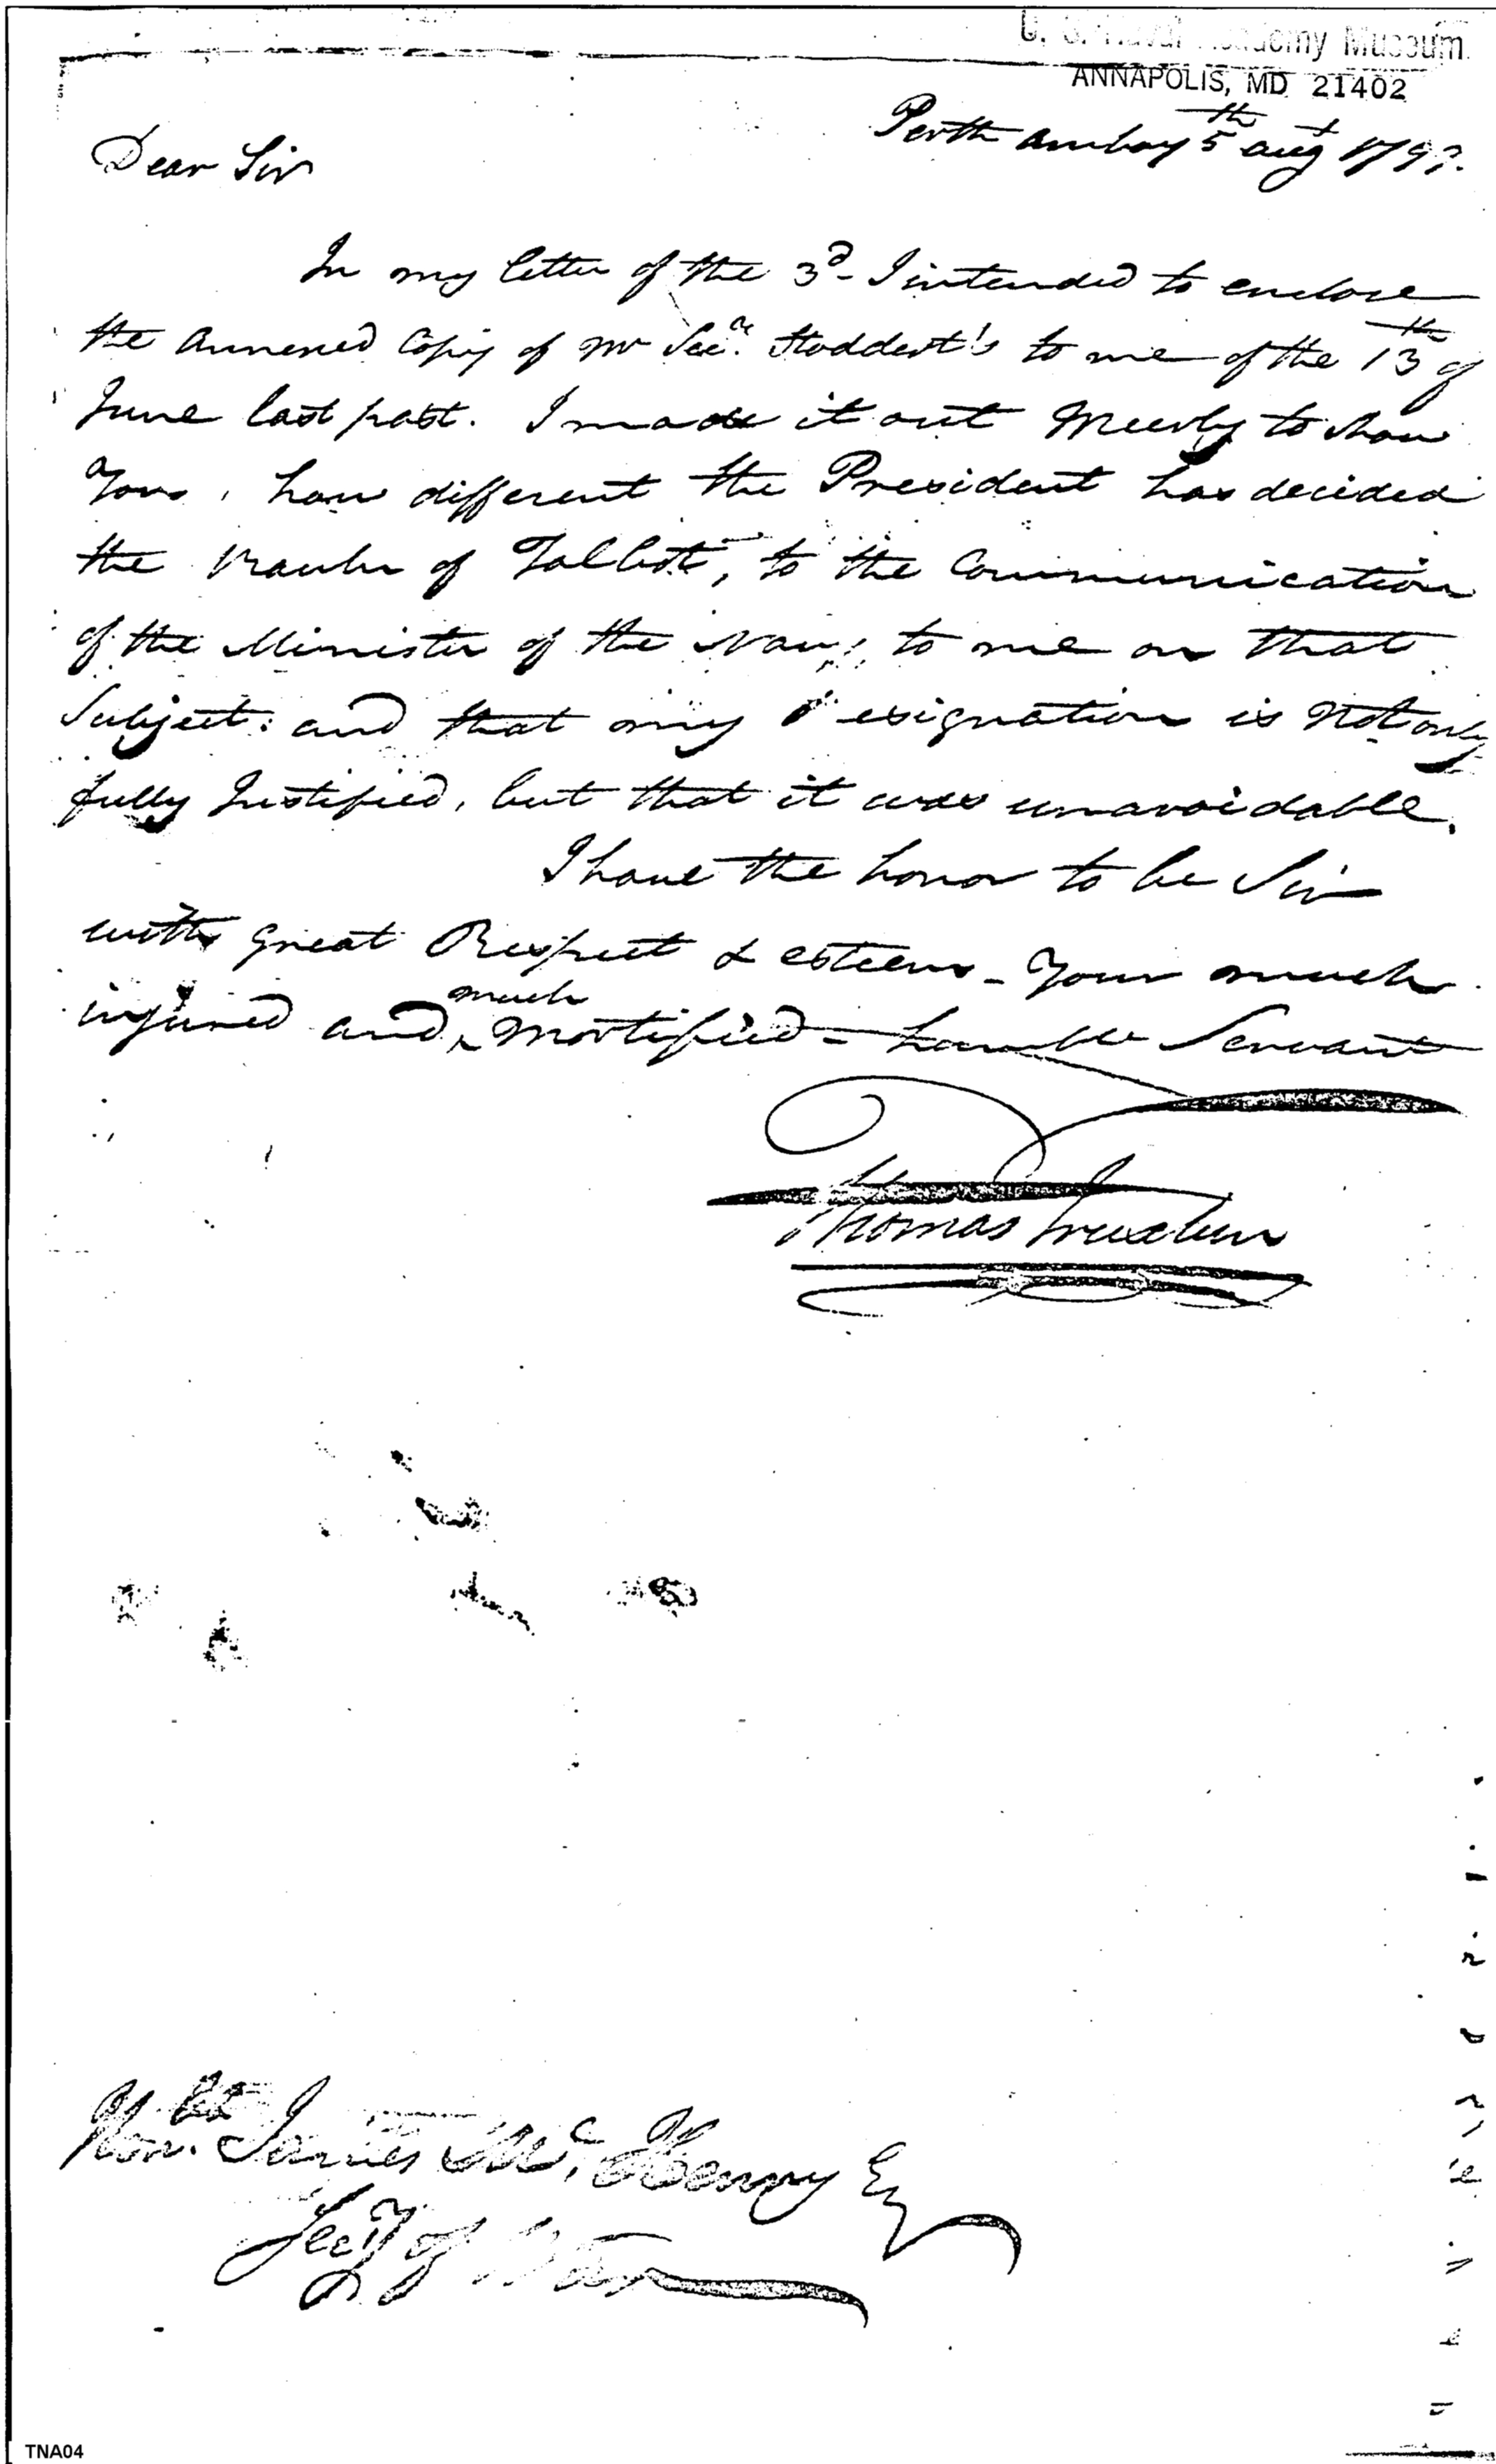 U. S. Naval Academy Museum
ANNAPOLIS, MD 21402
Perth Amboy 5th augt 1799.
Dear Sir
In my letter of the 3d - I intended to enclose
the annexed Copy of Mr Secy. Stoddert's to me of the 13th of
June last past. I made it out Meerly to show
You, how different the President has decided
the Rank of Talbot, to the Communication
of the Minister of the Navy, to me on that
Subject: and that my resignation is Not only
fully Justified, but that it was unavoidable.
I have the honor to be Sir
with great Respect & esteem - Your much
injured and much mortified - humble Servant
Thomas Truxtun
Honble James Mc. Henry Esq
Secy of War
TNA04